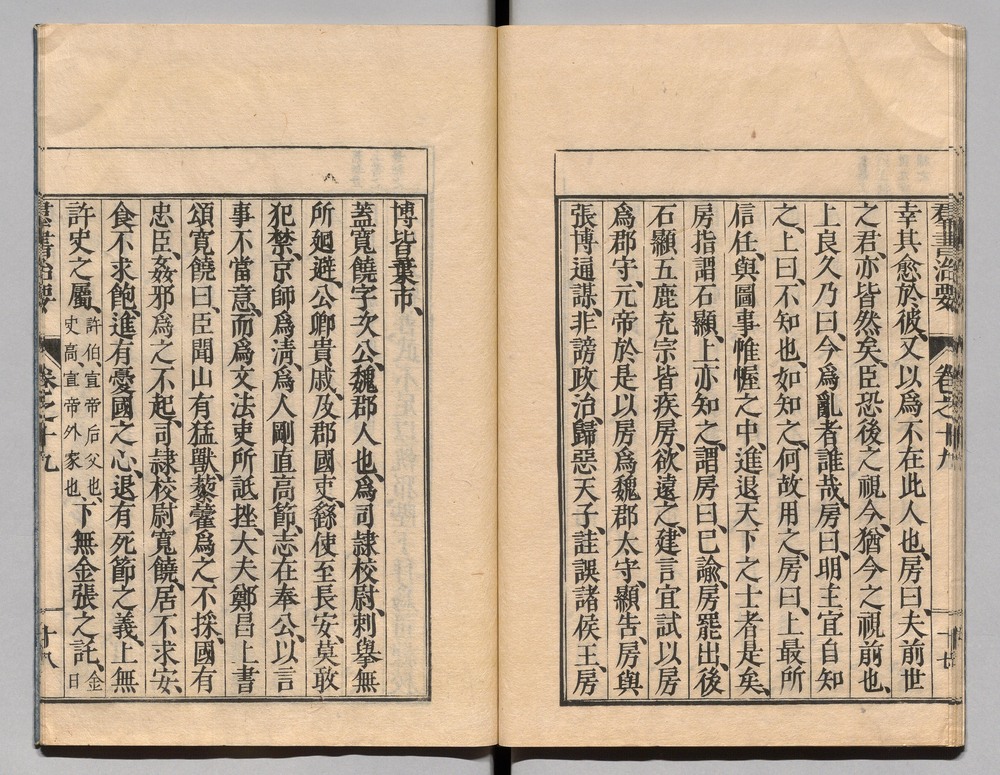 羣書治要 卷之十九 十七
幸其愈於彼、又以爲不在此人也、房曰、夫前世
之君、亦皆然矣、臣恐後之視今、猶今之視前也、
上良久乃曰、今爲亂者誰哉、房曰、明主宜自知
之、上曰、不知也、如知之、何故用之、房曰、上最所
信任、與圖事帷幄之中、進退天下之士者是矣、
房指謂石顯、上亦知之、謂房曰、已諭、房罷出、後
石顯五鹿充宗皆疾房、欲遠之、建言宜試以房
爲郡守、元帝於是以房爲魏郡太守、顯告、房與
張博通謀、非謗政治、歸惡天子、詿誤諸侯王、房
博皆棄市、
蓋寬饒字次公、魏郡人也、爲司隷校尉、刺擧無
所廻避、公卿貴戚、及郡國吏、繇使至長安、莫敢
犯禁、京師爲淸、爲人剛直高節、志在奉公、以言
事不當意、而爲文法吏所詆挫、大夫鄭昌上書
頌寬饒曰、臣聞山有猛獸、藜藿爲之不採、國有
忠臣、姦邪爲之不起、司隷校尉寬饒、居不求安、
食不求飽、進有憂國之心、退有死節之義、上無
許史之屬、許伯宣帝后父也、史高、宣帝外家也、下無金張之託、金日
羣書治要 卷之十九 十八